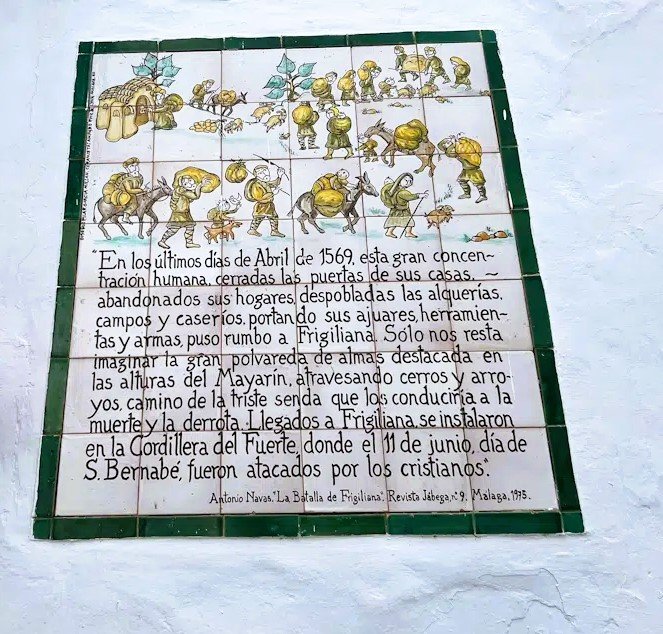 "En los últimos días de Abril de 1569, esta gran concen-
tración humana, cerradas las puertas de sus casas, ~
abandonados sus hogares, despobladas las alquerías,
campos y caseríos, portando sus ajuares, herramien-
tas y armas, puso rumbo a Frigiliana. Sólo nos resta
imaginar la gran polvareda de almas destacada en
las alturas del Mayarín, atravesando cerros y arro-
yos, camino de la triste senda que los conduciría a la
muerte y la derrota. Llegados a Frigiliana, se instalaron
en la Cordillera del Fuerte, donde el 11 de junio, día de
S. Bernabé, fueron atacados por los cristianos".
Antonio Navas, "La Batalla de Frigiliana". Revista Jábega, nº 9. Málaga, 1975.